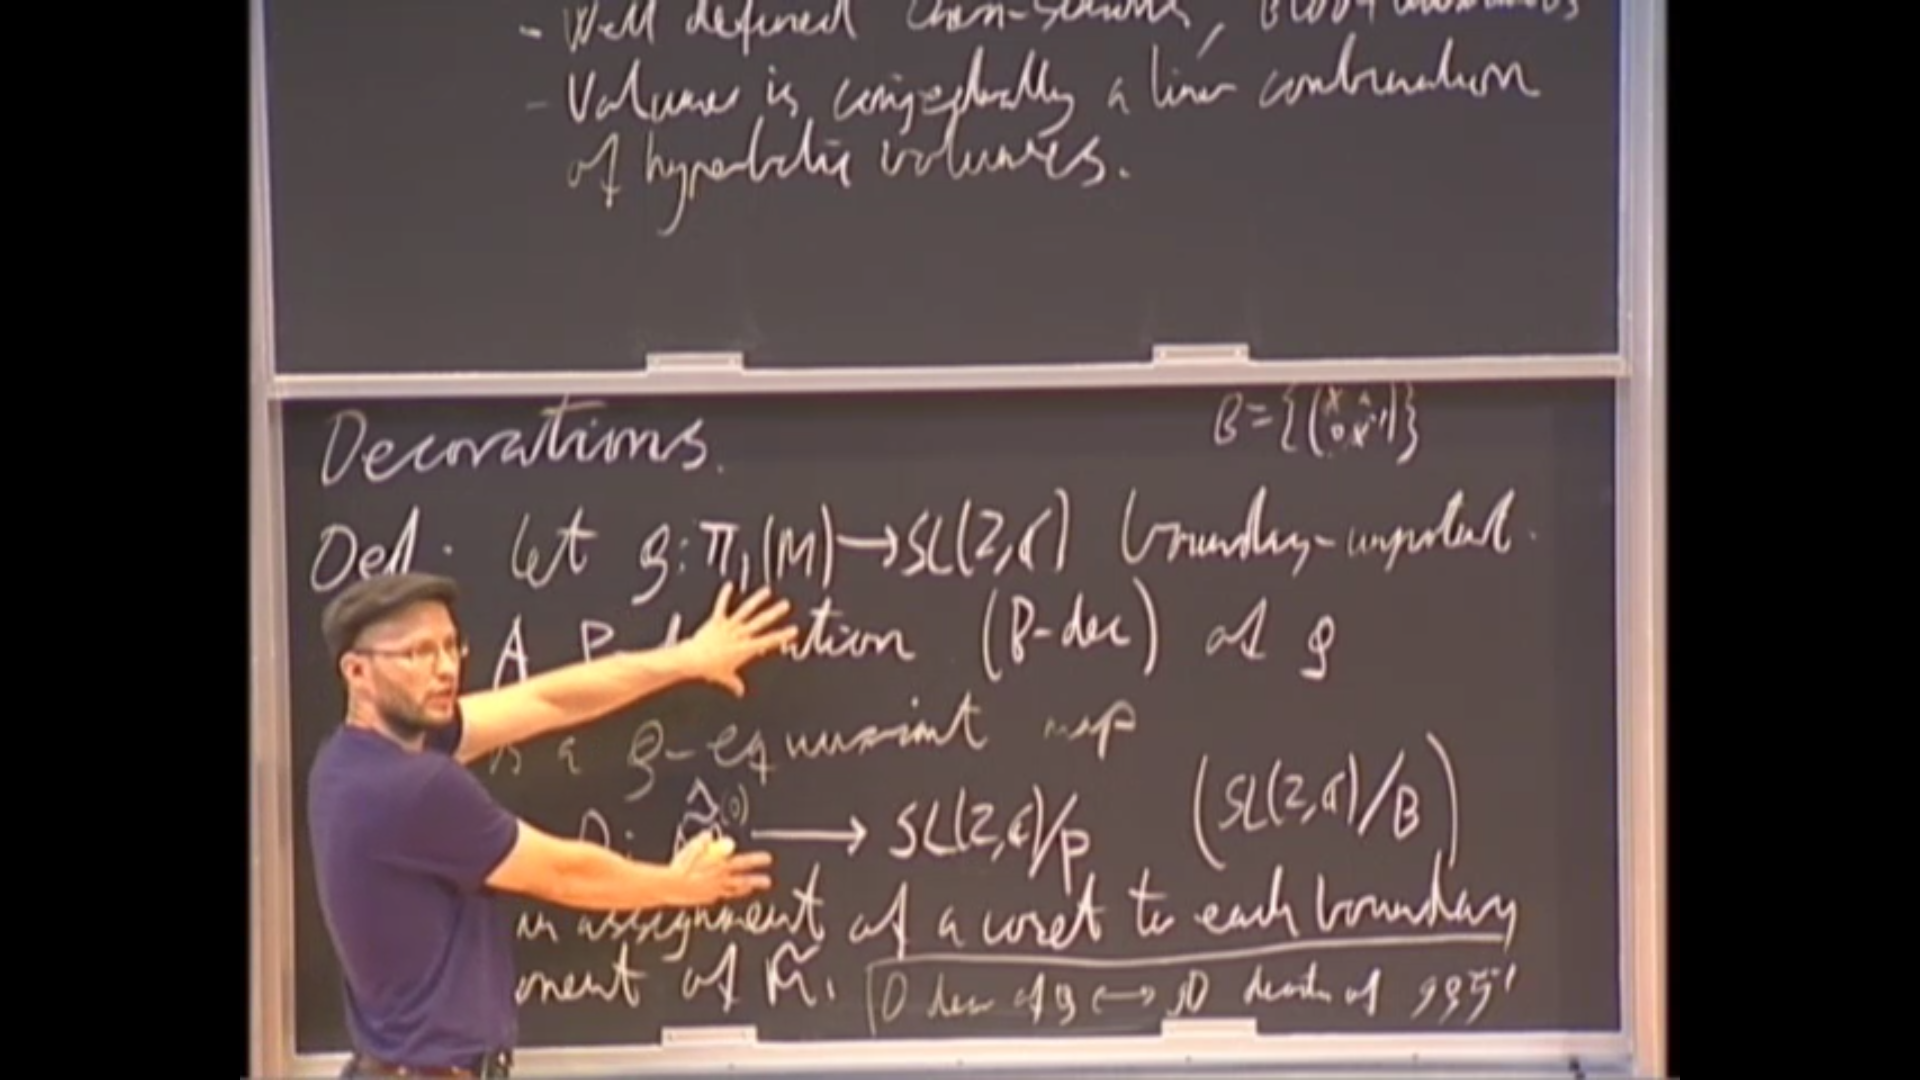 - Well defined Chern-Simons,
- Volume is conjecturally a linear combination
of hyperbolic volumes.
Decorations.
B = {(x * 0 x⁻¹)}
Def: Let ρ: π₁(M) → SL(2,ℂ) boundary-unipotent.
A P-decoration (B-dec) of ρ
is a ρ-equivariant map
D: → SL(2,ℂ)/P (SL(2,ℂ)/B)
an assignment of a coset to each boundary
of M̃.
D dec of ρ ↔ gD of gρg⁻¹